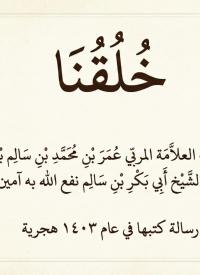 خُلُقُنَا
العلاَّمَة المربّي عُمَرَ بْنِ مُحَمَّدِ بْنِ سَالِم
الشَّيْخ أَبِي بَكْرِ بْنِ سَالِم نفع الله به آمين
رسالة كتبها في عام ١٤٠٣ هجرية